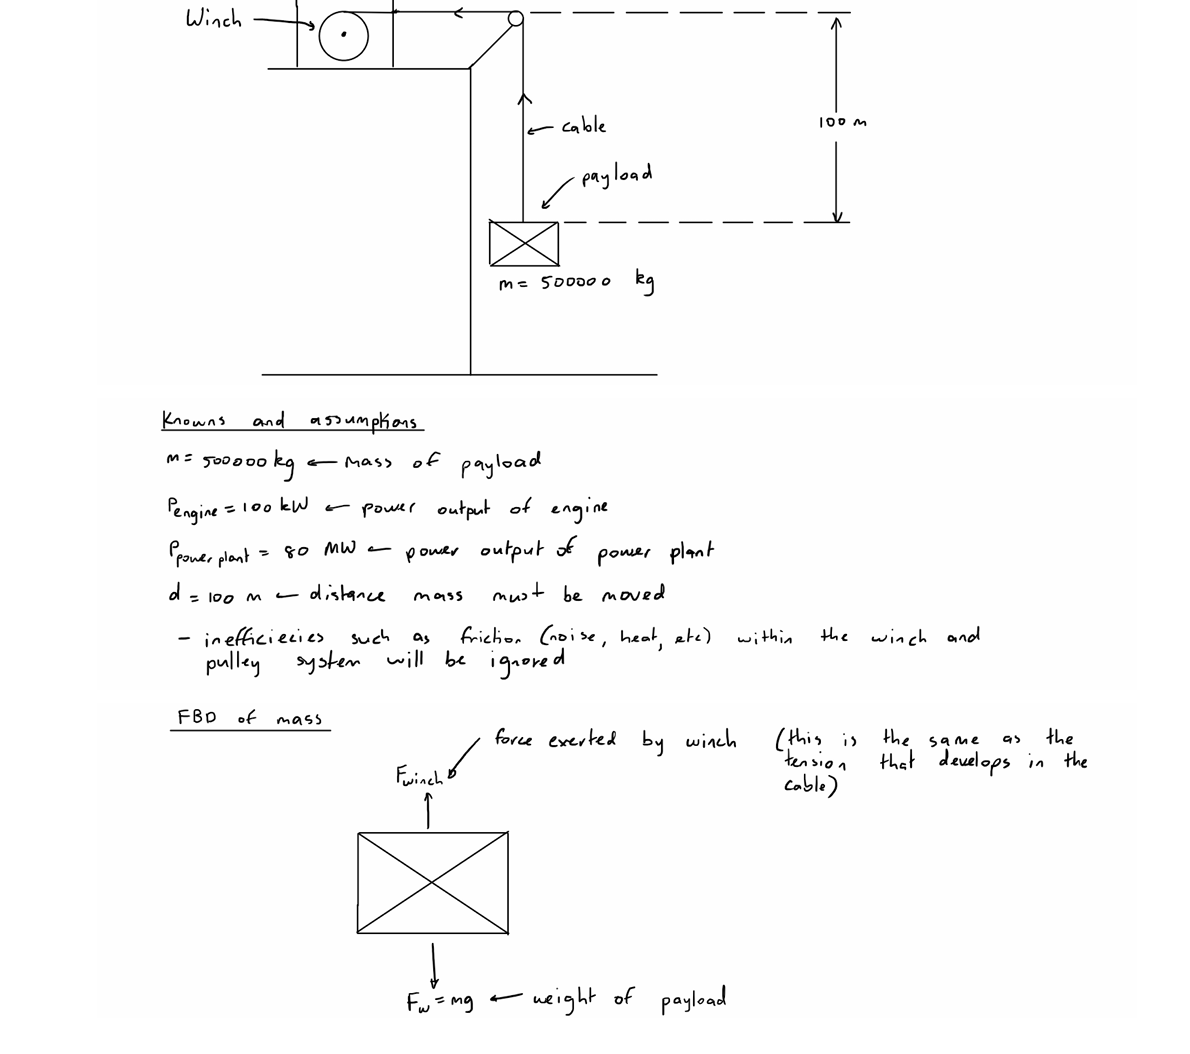 Winch
cable
100 m
payload
m = 500000 kg
Knowns and assumptions
m = 500000 kg ← mass of payload
Pengine = 100 kW ← power output of engine
Ppower plant = 80 MW ← power output of power plant
d = 100 m ← distance mass must be moved
- inefficiecies such as friction (noise, heat, etc) within the winch and
pulley system will be ignored
FBD of mass
force exerted by winch (this is the same as the
tension that develops in the
cable)
Fwinch
Fw = mg ← weight of payload